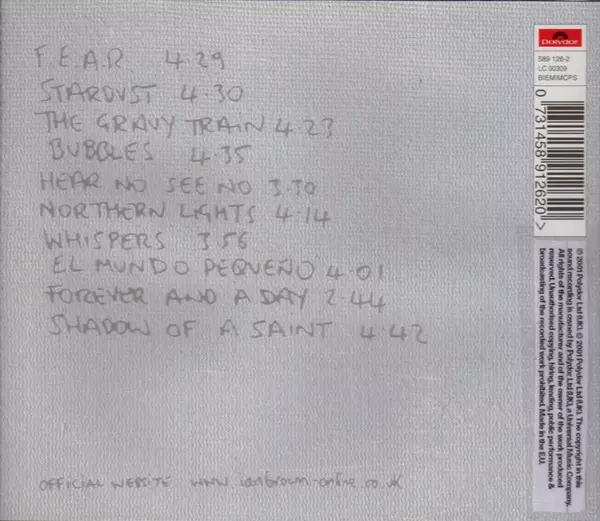 F.E.A.R. 4·29
STARDUST 4·30
THE GRAVY TRAIN 4·23
BUBBLES 4·35
HEAR NO SEE NO 3·30
NORTHERN LIGHTS 4·14
WHISPERS 3·56
EL MUNDO PEQUEÑO 4·01
FOREVER AND A DAY 2·44
SHADOW OF A SAINT 4·42
OFFICIAL WEBSITE WWW ianbrown-online.co.uk
Polydor
589 126-2
LC 00309
BIEM/MCPS
0 731458 912620 >
℗ 2001 Polydor Ltd (UK). © 2001 Polydor Ltd (UK). The copyright in this
sound recording is owned by Polydor Ltd (UK), a Universal Music Company.
All rights of the manufacturer and of the owner of the work produced
reserved. Unauthorised copying, hiring, lending, public performance &
broadcasting of the recorded work prohibited. Made in the E.U.